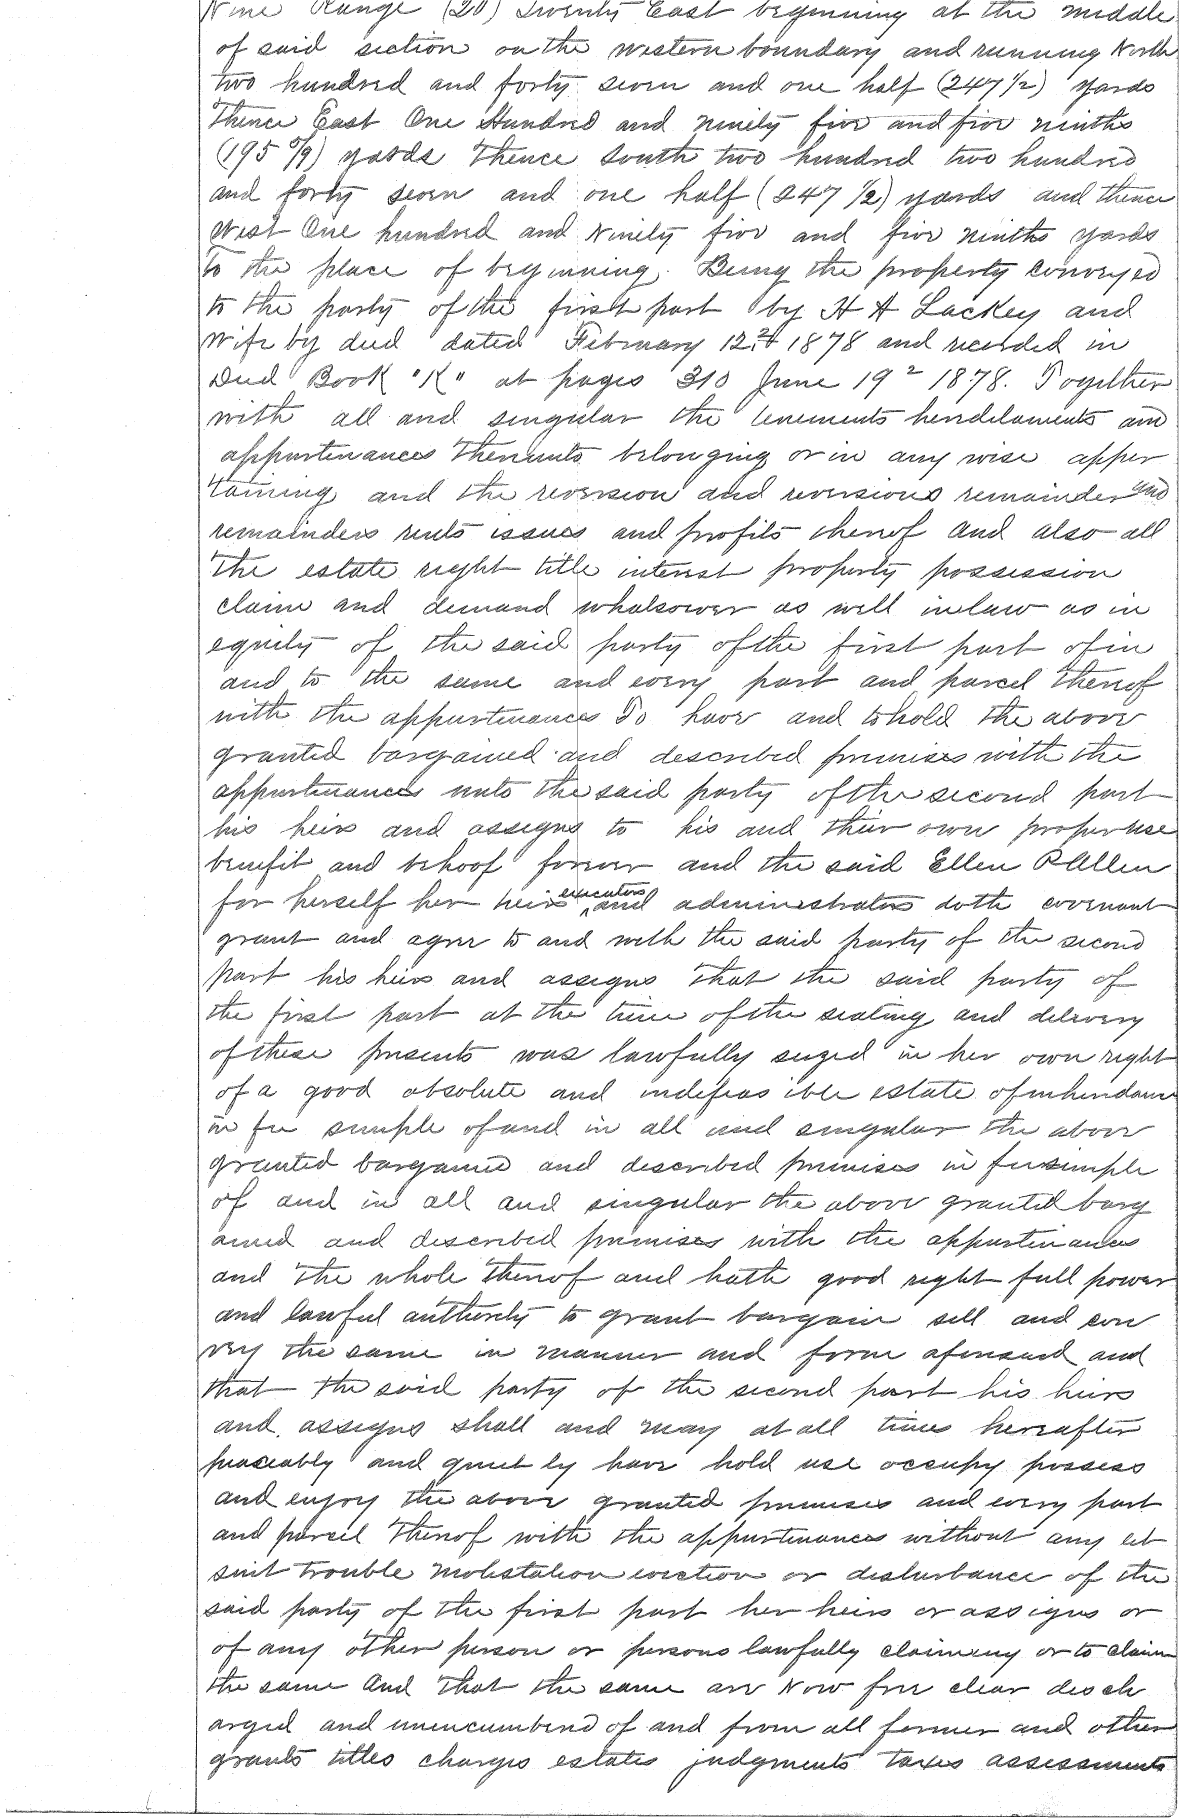 Nine Range (20) Twenty East beginning at the middle
of said section on the western boundary and running North
two hundred and forty seven and one half (247 1/2) yards
Thence East One Hundred and ninety five and five ninths
(195 5/9) yards Thence South two hundred two hundred
and forty seven and one half (247 1/2) yards and thence
West One hundred and Ninety five and five ninths yards
To the place of beginning. Being the property conveyed
to the party of the first part by H A Lackey and
Wife by deed dated February 12th 1878 and recorded in
Deed Book "K" at pages 310 June 19 1878. Together
with all and singular the tenements hereditaments and
appurtenances thereunto belonging or in any wise apper
taining and the reversion and reversions remainder and
remainders rents issues and profits thereof and also all
The estate right title interest property possession
claim and demand whatsoever as well in law as in
equity of the said party of the first part of in
and to the same and every part and parcel thereof
with the appurtenances To have and to hold the above
granted bargained and described premises with the
appurtenances unto the said party of the second part
his heirs and assigns to his and their own proper use
benefit and behoof forever and the said Ellen P Allen
for herself her heirs executors and administrators doth covenant
grant and agree to and with the said party of the second
part his heirs and assigns That the said party of
the first part at the time of the sealing and delivery
of these presents was lawfully seized in her own right
of a good absolute and indefeasible estate of inheritance
in fee simple of and in all and singular the above
granted bargained and described premises in fee simple
of and in all and singular the above granted barg
ained and described premises with the appurtenances
and the whole thereof and hath good right full power
and lawful authority to grant bargain sell and con
vey the same in manner and form aforesaid and
that the said party of the second part his heirs
and assigns shall and may at all times hereafter
peaceably and quietly have hold use occupy possess
and enjoy the above granted premises and every part
and parcel thereof with the appurtenances without any let
suit trouble molestation eviction or disturbance of the
said party of the first part her heirs or assigns or
of any other person or persons lawfully claiming or to claim
the same And That the same are Now free clear disch
arged and unencumbered of and from all former and other
grants titles charges estates judgments taxes assessments